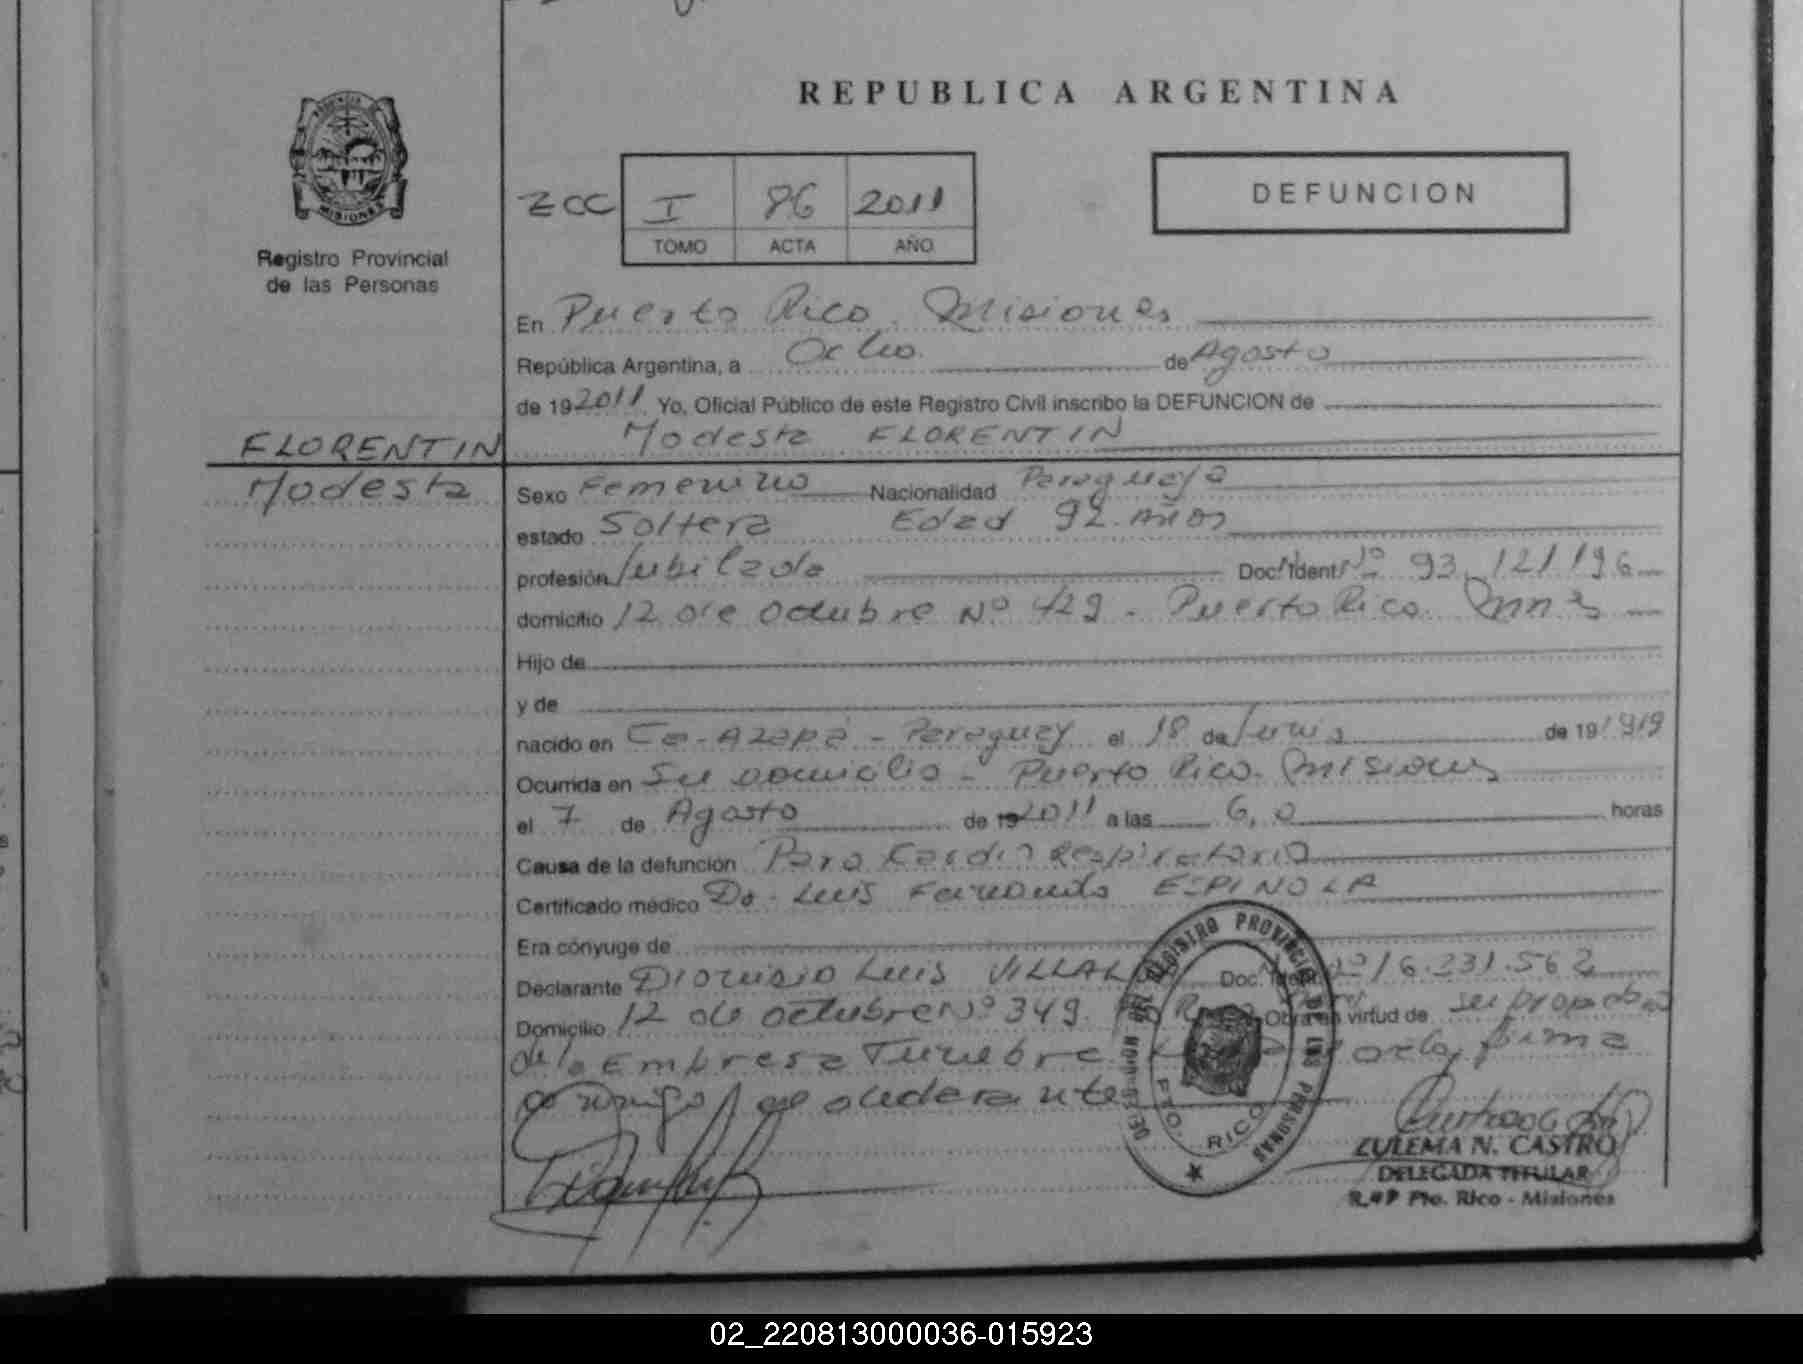 REPUBLICA ARGENTINA
PROVINCIA DE
MISIONES
Registro Provincial
de las Personas
DEFUNCION
ZCC I 86 2011
TOMO ACTA AÑO
En Puerto Rico, Misiones
República Argentina, a Ocho de Agosto
de 192011 Yo, Oficial Público de este Registro Civil inscribo la DEFUNCION de
Modesta FLORENTIN
FLORENTIN
Modesta
Sexo Femenino Nacionalidad Paraguaya
estado Soltera Edad 92 Años
profesión Jubilada Doc. Ident. Nº 93.121196
domicilio 12 de Octubre Nº 429 - Puerto Rico. Mnes
Hijo de
y de
nacido en Ca-Azapá - Paraguay el 18 de Junio de 191919
Ocurrida en Su Domicilio - Puerto Rico. Misiones
el 7 de Agosto de 192011 a las 6,0 horas
Causa de la defunción Paro Cardio Respiratorio
Certificado médico Dr. Luis Fernando ESPINOLA
Era cónyuge de
Declarante Dionisio Luis VILLAL Doc. Ident. Nº 16.231.562
Domicilio 12 de octubre Nº 349. Obra en virtud de ser propietario
de la Empresa Funebre firma
conmigo el declarante
DELEGACION DEL REGISTRO PROVINCIAL DE LAS PERSONAS
PTO. RICO
ZULEMA N. CASTRO
DELEGADA TITULAR
R.P.P Pto. Rico - Misiones
02_220813000036-015923